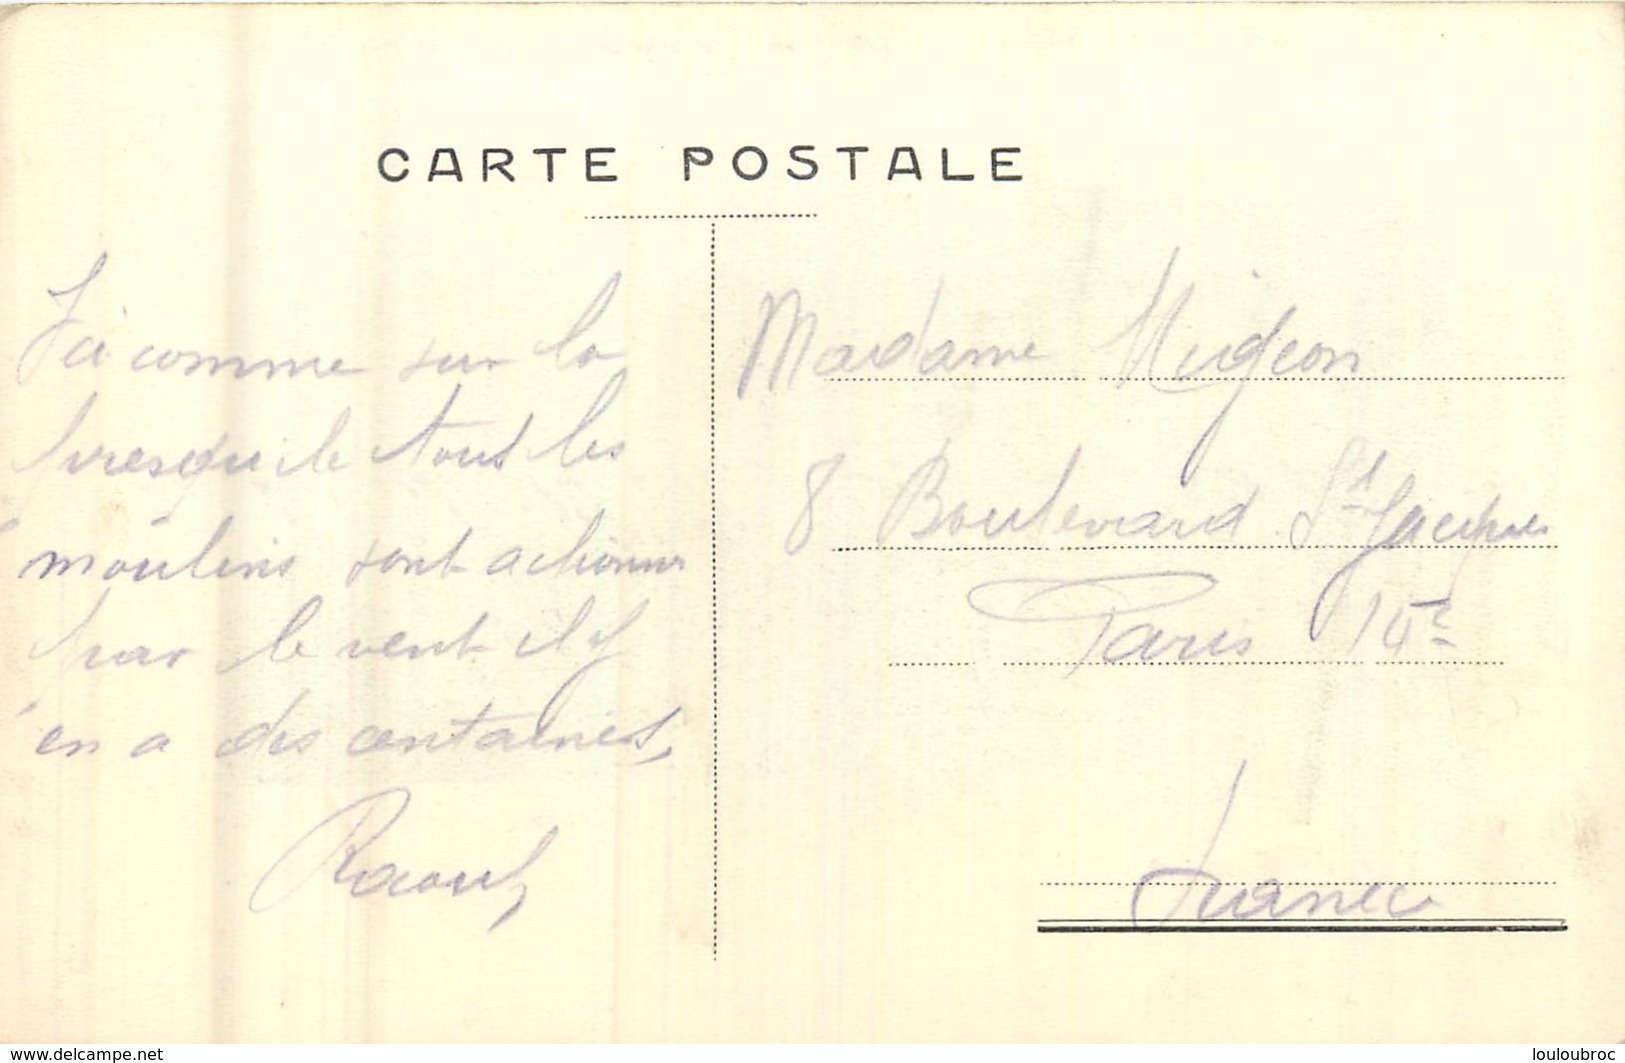 CARTE POSTALE
Ici comme sur la
presqu'ile tous les
moulins sont actionnés
par le vent il y
en a des centaines,
Raoul
Madame Migeon
8 Boulevard St Jacques
Paris 14e
France
www.delcampe.net
louloubroc